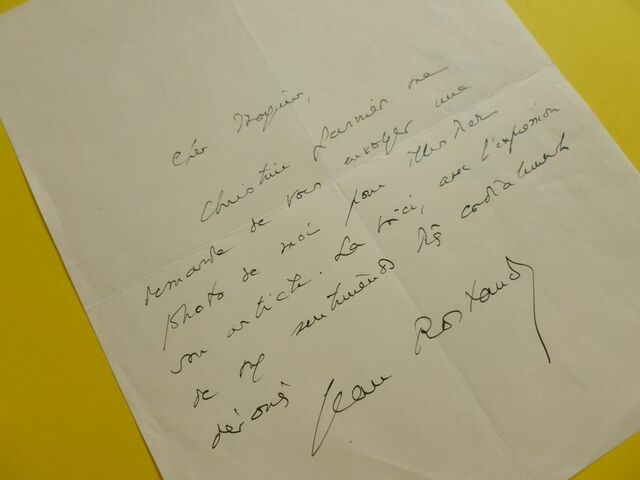 Cher Monsieur,
Christine Garnier me
demande de vous envoyer une
photo de moi pour illustrer
son article. La voici, avec l'expression
de mes sentiments très cordialement
dévoués
Jean Rostand